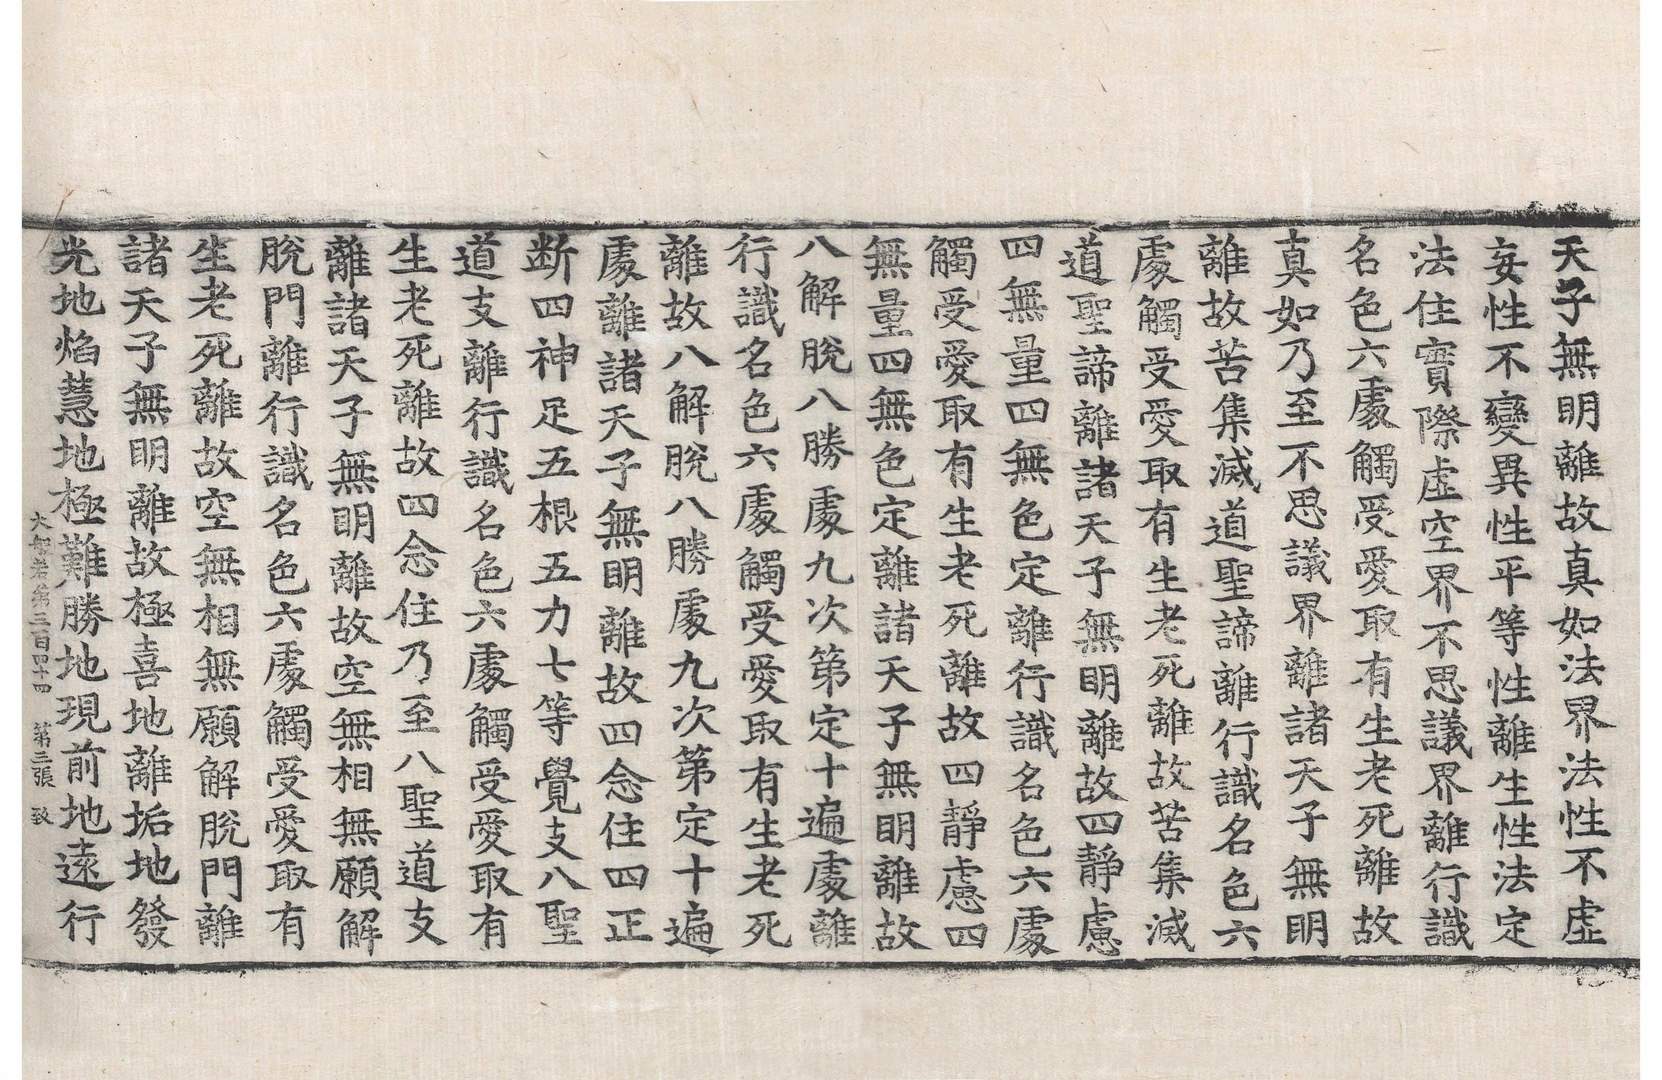 天子無明離故真如法界法性不虛
妄性不變異性平等性離生性法定
法住實際虛空界不思議界離行識
名色六處觸受愛取有生老死離故
真如乃至不思議界離諸天子無明
離故苦集滅道聖諦離行識名色六
處觸受愛取有生老死離故苦集滅
道聖諦離諸天子無明離故四靜慮
四無量四無色定離行識名色六處
觸受愛取有生老死離故四靜慮四
無量四無色定離諸天子無明離故
八解脫八勝處九次第定十遍處離
行識名色六處觸受愛取有生老死
離故八解脫八勝處九次第定十遍
處離諸天子無明離故四念住四正
断四神足五根五力七等覺支八聖
道支離行識名色六處觸受愛取有
生老死離故四念住乃至八聖道支
離諸天子無明離故空無相無願解
脫門離行識名色六處觸受愛取有
生老死離故空無相無願解脫門離
諸天子無明離故極喜地離垢地發
光地焰慧地極難勝地現前地遠行
大般若第三百四十四 第三張 致